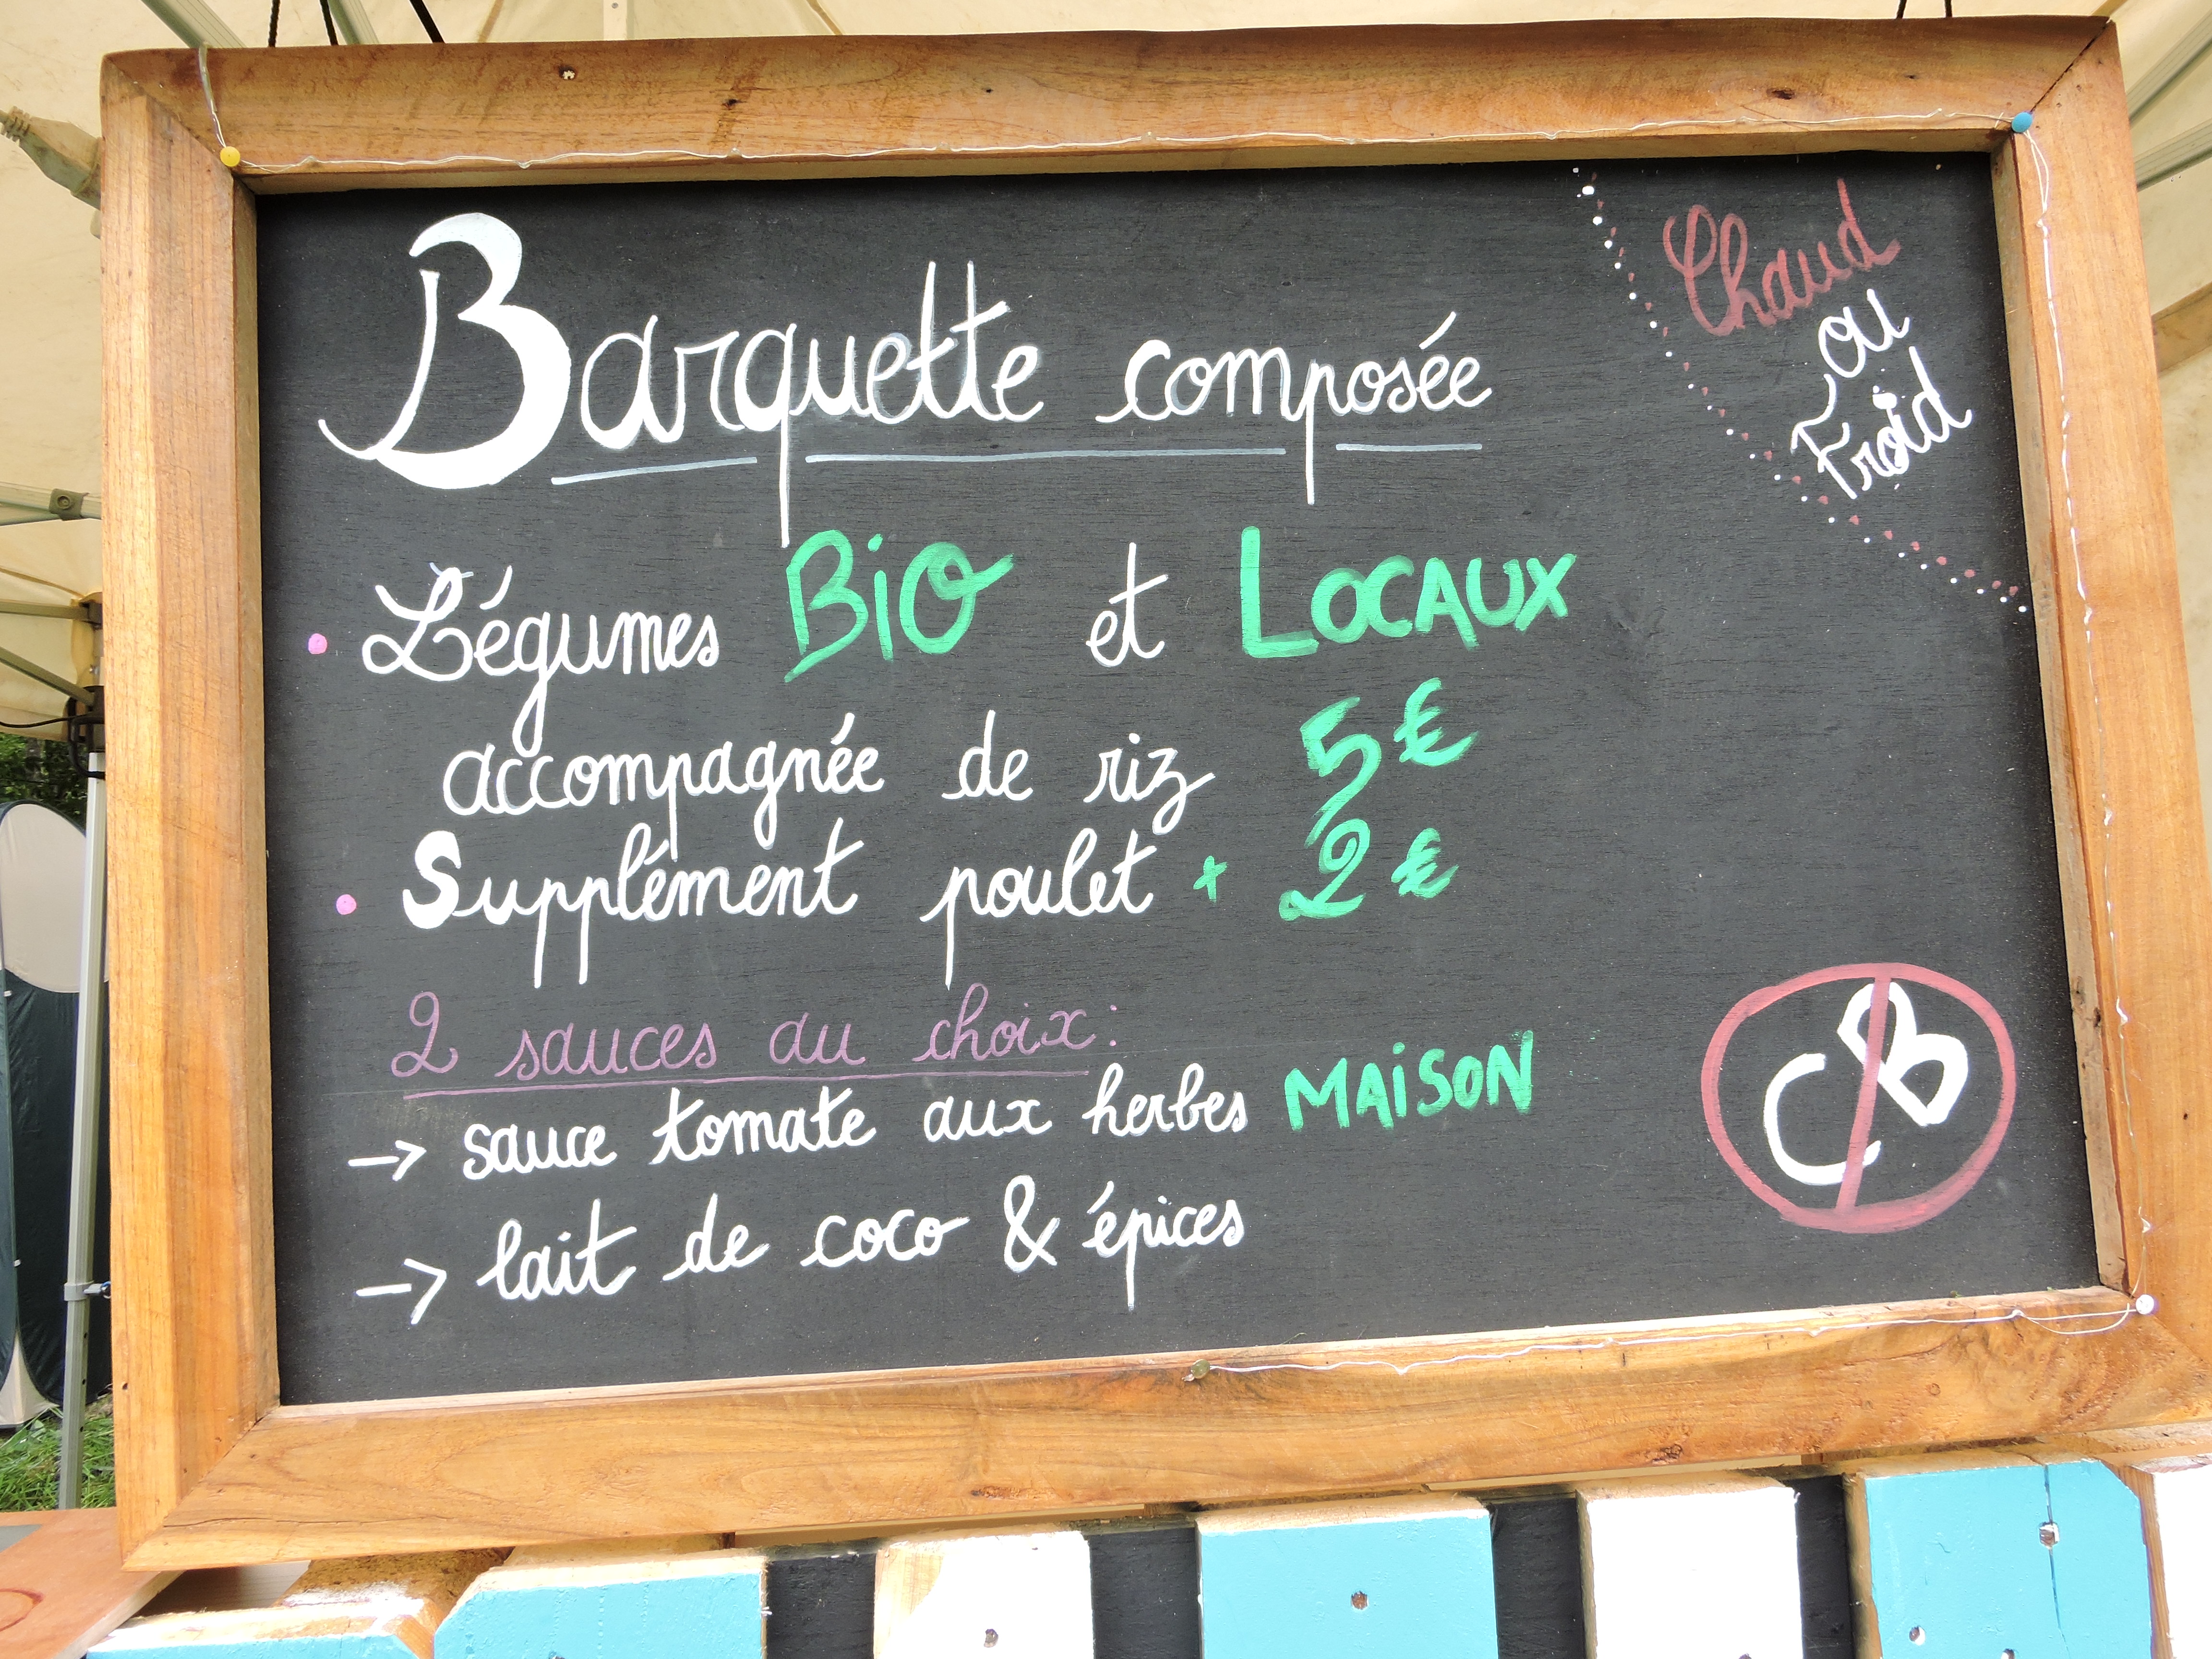 Barquette composée
Chaud
ou
Froid
• Légumes BiO et LOCAUX
accompagnée de riz 5€
• Supplément poulet + 2€
2 sauces au choix:
→ sauce tomate aux herbes MAiSON
→ lait de coco & épices
CB